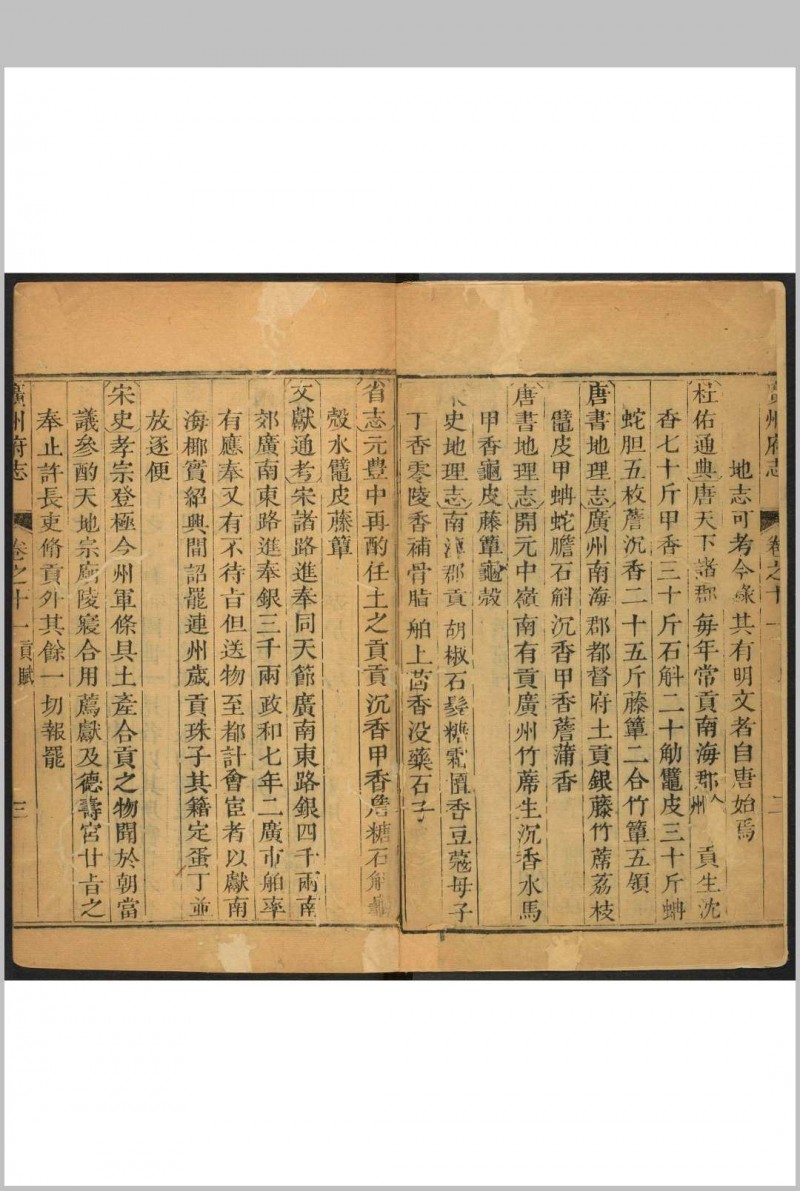 廣州府志 卷之十一 二
地志可考今錄其有明文者自唐始焉
杜佑通典唐天下諸郡每年常貢南海郡廣州貢生沈
香七十斤甲香三十斤石斛二十觔鼊皮三十斤蚺
蛇胆五枚詹沉香二十五斤藤簟二合竹簟五領
唐書地理志廣州南海郡都督府土貢銀藤竹蓆荔枝
鼊皮甲蚺蛇膽石斛沉香甲香詹蒲香
唐書地理志開元中嶺南有貢廣州竹蓆生沉香水馬
甲香龜皮藤簟龜殼
史地理志南漳郡貢胡椒石髮糖霜檀香豆蔻母子
丁香零陵香補骨脂舶上茴香没藥石子
省志元豐中再酌任土之貢貢沉香甲香詹糖石斛龜
殼水鼊皮藤簟
文獻通考宋諸路進奉同天節廣南東路銀四千兩南
郊廣南東路進奉銀三千兩政和七年二廣市舶率
有應奉又有不待㫖但送物至都計會宦者以獻南
海椰實紹興間詔罷連州歲貢珠子其籍定蛋丁並
放逐便
宋史孝宗登極今州軍條具土產合貢之物聞於朝當
議參酌天地宗廟陵寢合用薦獻及德壽宮甘㫖之
奉止許長吏脩貢外其餘一切報罷
廣州府志 卷之十一 貢賦 三